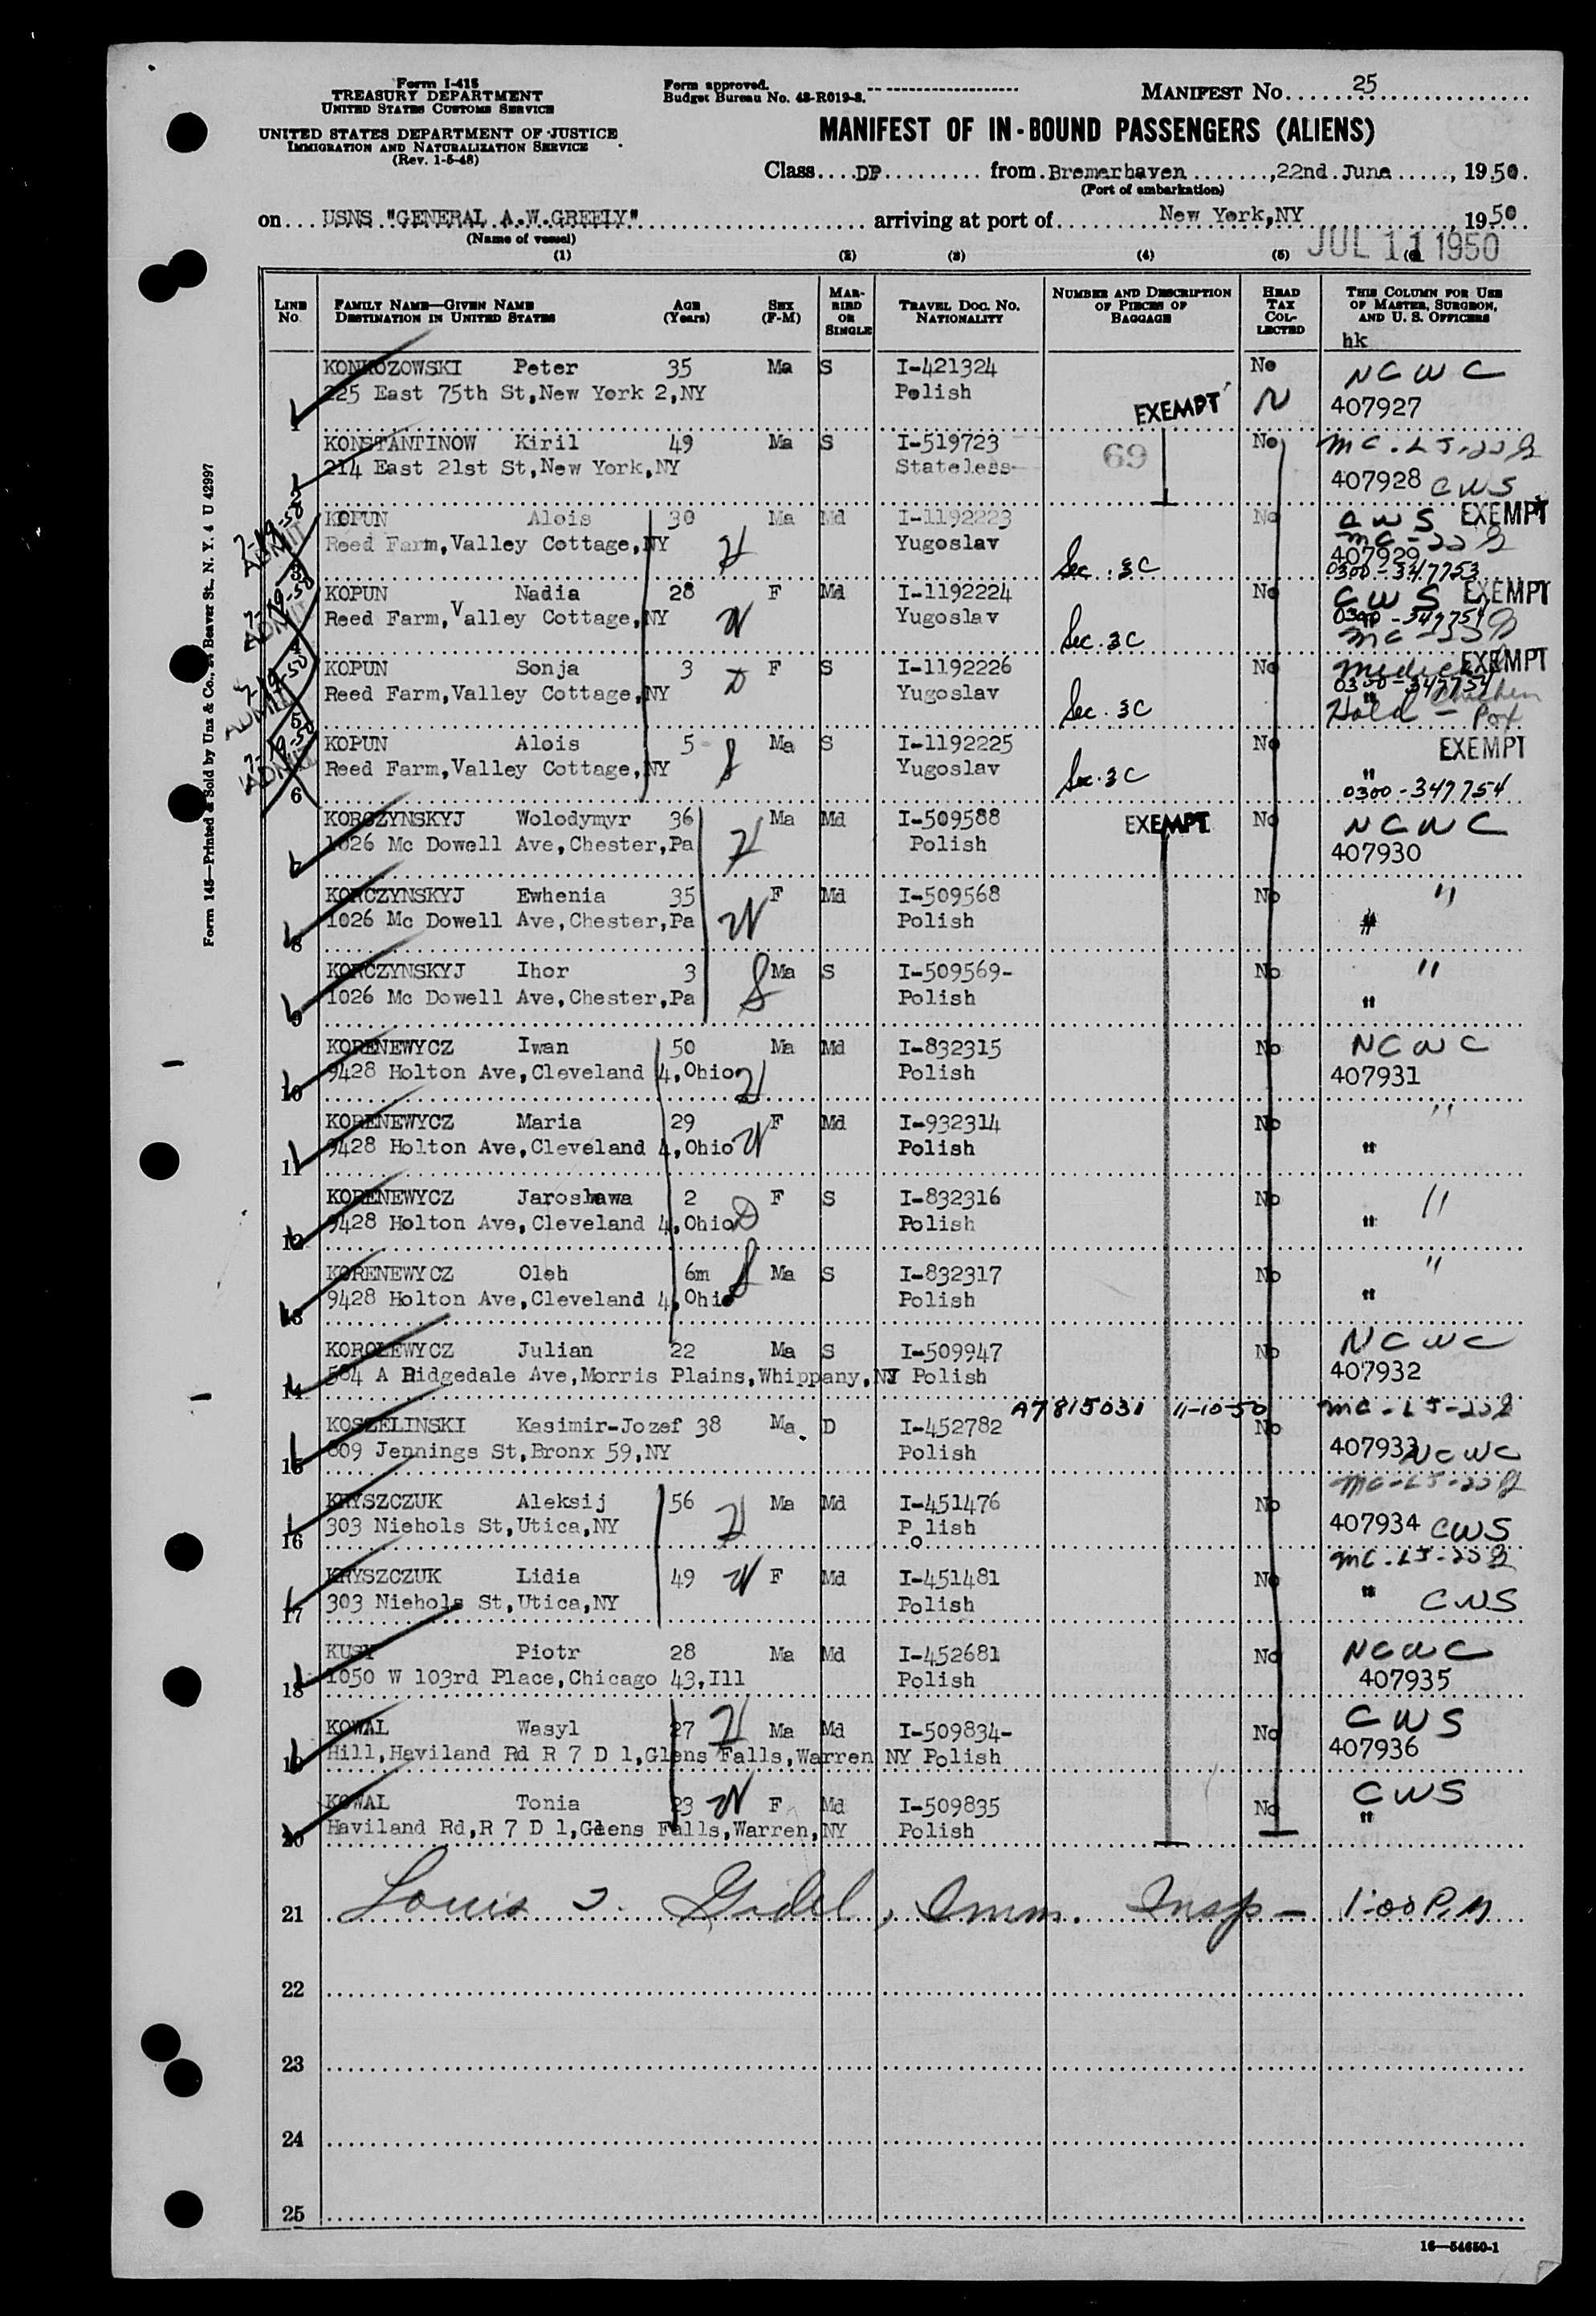 Form I-415
TREASURY DEPARTMENT
UNITED STATES CUSTOMS SERVICE
UNITED STATES DEPARTMENT OF JUSTICE
IMMIGRATION AND NATURALIZATION SERVICE
(Rev. 1-5-48)
Form approved.
Budget Bureau No. 43-R019-3.
MANIFEST No. 25
MANIFEST OF IN-BOUND PASSENGERS (ALIENS)
Class DP from Bremerhaven, 22nd June, 1950.
(Port of embarkation)
on USNS "GENERAL A.W.GREELY" arriving at port of New York,NY, 1950
(Name of vessel)
JUL 11 1950
(1) (2) (3) (4) (5)
LINE No. FAMILY NAME—GIVEN NAME DESTINATION IN UNITED STATES AGE (Years) SEX (F-M) MARRIED OR SINGLE TRAVEL DOC. NO. NATIONALITY NUMBER AND DESCRIPTION OF PIECES OF BAGGAGE HEAD TAX COLLECTED THIS COLUMN FOR USE OF MASTER, SURGEON, AND U. S. OFFICERS
hk
KONKOZOWSKI Peter 35 Ma S I-421324 No NCWC
1 225 East 75th St,New York 2,NY Polish EXEMPT N 407927
KONSTANTINOW Kiril 49 Ma S I-519723 69 No MC-LJ-22
2 214 East 21st St,New York,NY Stateless 407928 CWS
KOPUN Alois 30 Ma Md I-1192223 No CWS EXEMPT
3 Reed Farm,Valley Cottage,NY Yugoslav Sec. 3C 407929
0300-347753
7-19-50 ADMIT
KOPUN Nadia 28 F Md I-1192224 No CWS EXEMPT
4 Reed Farm,Valley Cottage,NY Yugoslav Sec. 3C 0300-347754
7-19-50 ADMIT
KOPUN Sonja 3 F S I-1192226 No Medical EXEMPT
5 Reed Farm,Valley Cottage,NY Yugoslav Sec. 3C 0300-347754
Hold - Chicken Pox
7-19-50 ADMIT
KOPUN Alois 5 Ma S I-1192225 No EXEMPT
6 Reed Farm,Valley Cottage,NY Yugoslav Sec. 3C "
0300-347754
7-19-50 ADMIT
KORCZYNSKYJ Wolodymyr 36 Ma Md I-509588 EXEMPT No NCWC
7 1026 Mc Dowell Ave,Chester,Pa Polish 407930
KORCZYNSKYJ Ewhenia 35 F Md I-509568 No "
8 1026 Mc Dowell Ave,Chester,Pa Polish "
KORCZYNSKYJ Ihor 3 Ma S I-509569- No "
9 1026 Mc Dowell Ave,Chester,Pa Polish "
KORENEWYCZ Iwan 50 Ma Md I-832315 No NCWC
10 9428 Holton Ave,Cleveland 4,Ohio Polish 407931
KORENEWYCZ Maria 29 F Md I-932314 No "
11 9428 Holton Ave,Cleveland 4,Ohio Polish "
KORENEWYCZ Jaroslawa 2 F S I-832316 No "
12 9428 Holton Ave,Cleveland 4,Ohio Polish "
KORENEWYCZ Oleh 6m Ma S I-832317 No "
13 9428 Holton Ave,Cleveland 4,Ohio Polish "
KOROLEWYCZ Julian 22 Ma S I-509947 No NCWC
14 504 A Ridgedale Ave,Morris Plains,Whippany,NJ Polish 407932
A7815031 11-10-50 MC-LJ-22
KOSZELINSKI Kasimir-Jozef 38 Ma. D I-452782 No
15 809 Jennings St,Bronx 59,NY Polish 407933 NCWC
MC-LJ-22
KRYSZCZUK Aleksij 56 Ma Md I-451476 No
16 303 Niehols St,Utica,NY Polish 407934 CWS
MC-LJ-22
KRYSZCZUK Lidia 49 F Md I-451481 No
17 303 Niehols St,Utica,NY Polish " CWS
KUSY Piotr 28 Ma Md I-452681 No NCWC
18 1050 W 103rd Place,Chicago 43,Ill Polish 407935
KOWAL Wasyl 27 Ma Md I-509834- No CWS
19 Hill,Haviland Rd R 7 D 1,Glens Falls,Warren NY Polish 407936
KOWAL Tonia 23 F Md I-509835 No CWS
20 Haviland Rd,R 7 D 1,Glens Falls,Warren,NY Polish "
21 Louis J. Gidel, Imm. Insp - 1:00 P.M
22
23
24
25
16—54650-1
Form 145—Printed & Sold by Unz & Co., Beaver St., N. Y. 4 U 42997